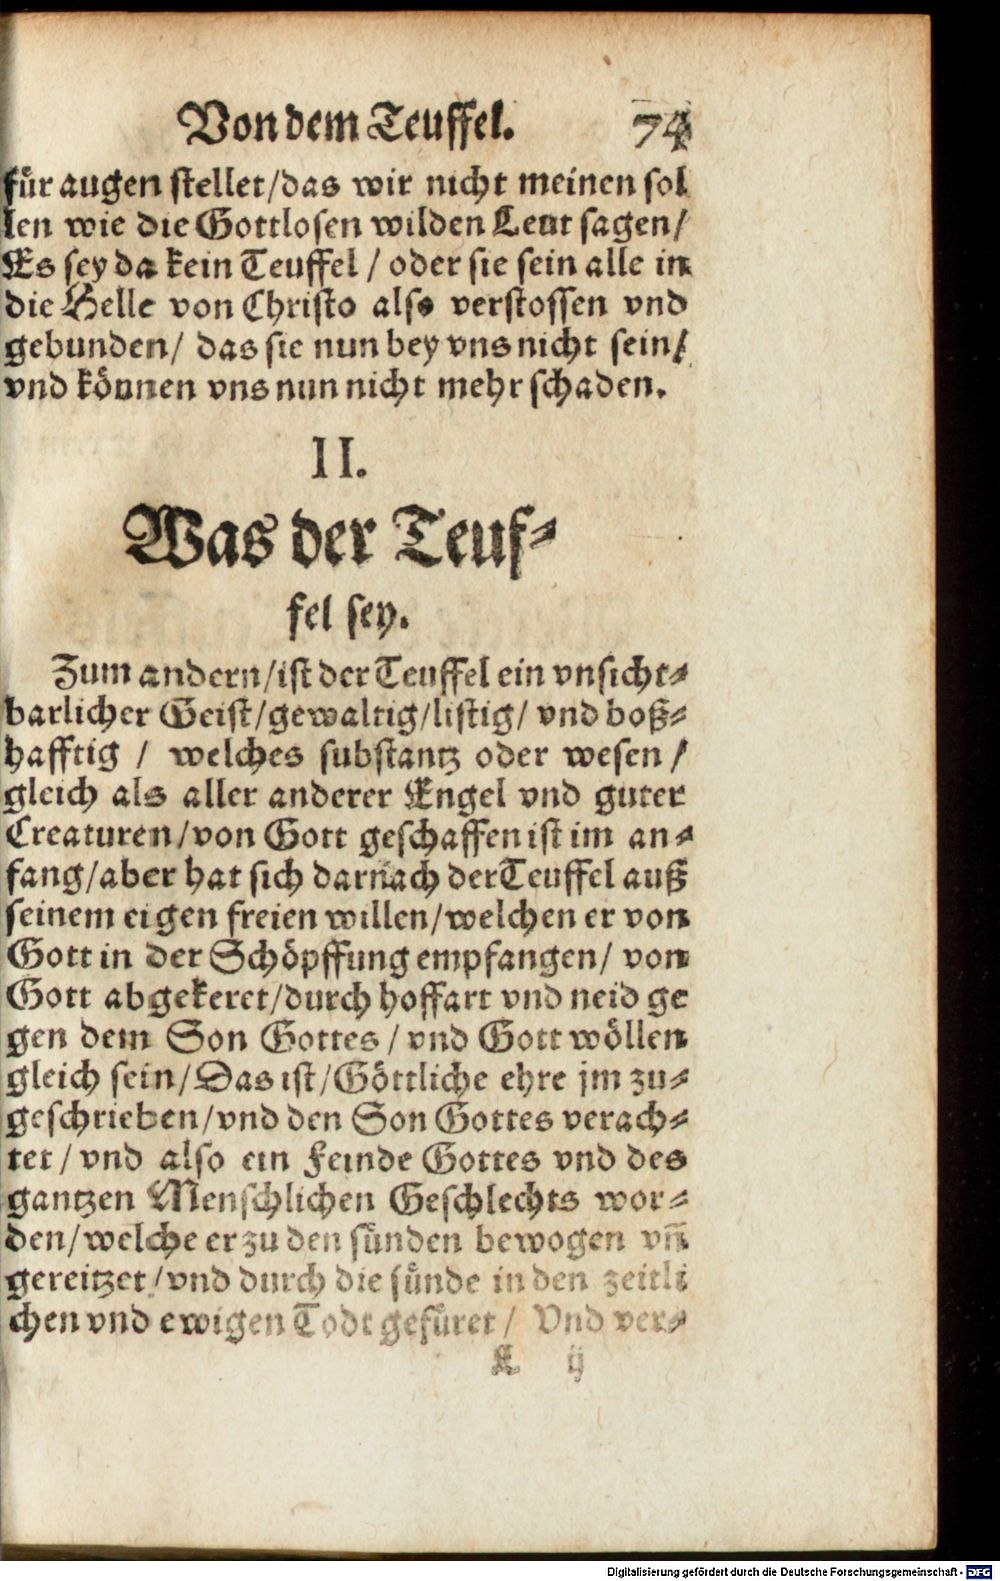 Von dem Teuffel. 74
für augen stellet/das wir nicht meinen sol
len wie die Gottlosen wilden Leut sagen/
Es sey da kein Teuffel / oder sie sein alle in
die Helle von Christo also verstossen vnd
gebunden/ das sie nun bey vns nicht sein/
vnd können vns nun nicht mehr schaden.
II.
Was der Teuf-
fel sey.
Zum andern/ist der Teuffel ein vnsicht-
barlicher Geist/gewaltig/listig/ vnd boß-
hafftig / welches substantz oder wesen/
gleich als aller anderer Engel vnd guter
Creaturen/von Gott geschaffen ist im an-
fang/aber hat sich darnach der Teuffel auß
seinem eigen freien willen/welchen er von
Gott in der Schöpffung empfangen/ von
Gott abgekeret/durch hoffart vnd neid ge
gen dem Son Gottes / vnd Gott wöllen
gleich sein/Das ist/Göttliche ehre jm zu-
geschrieben/vnd den Son Gottes verach-
tet / vnd also ein Feinde Gottes vnd des
gantzen Menschlichen Geschlechts wor-
den/welche er zu den sünden bewogen vñ
gereitzet/vnd durch die sünde in den zeitli
chen vnd ewigen Todt gefüret / Vnd ver-
K ij
Digitalisierung gefördert durch die Deutsche Forschungsgemeinschaft - DFG